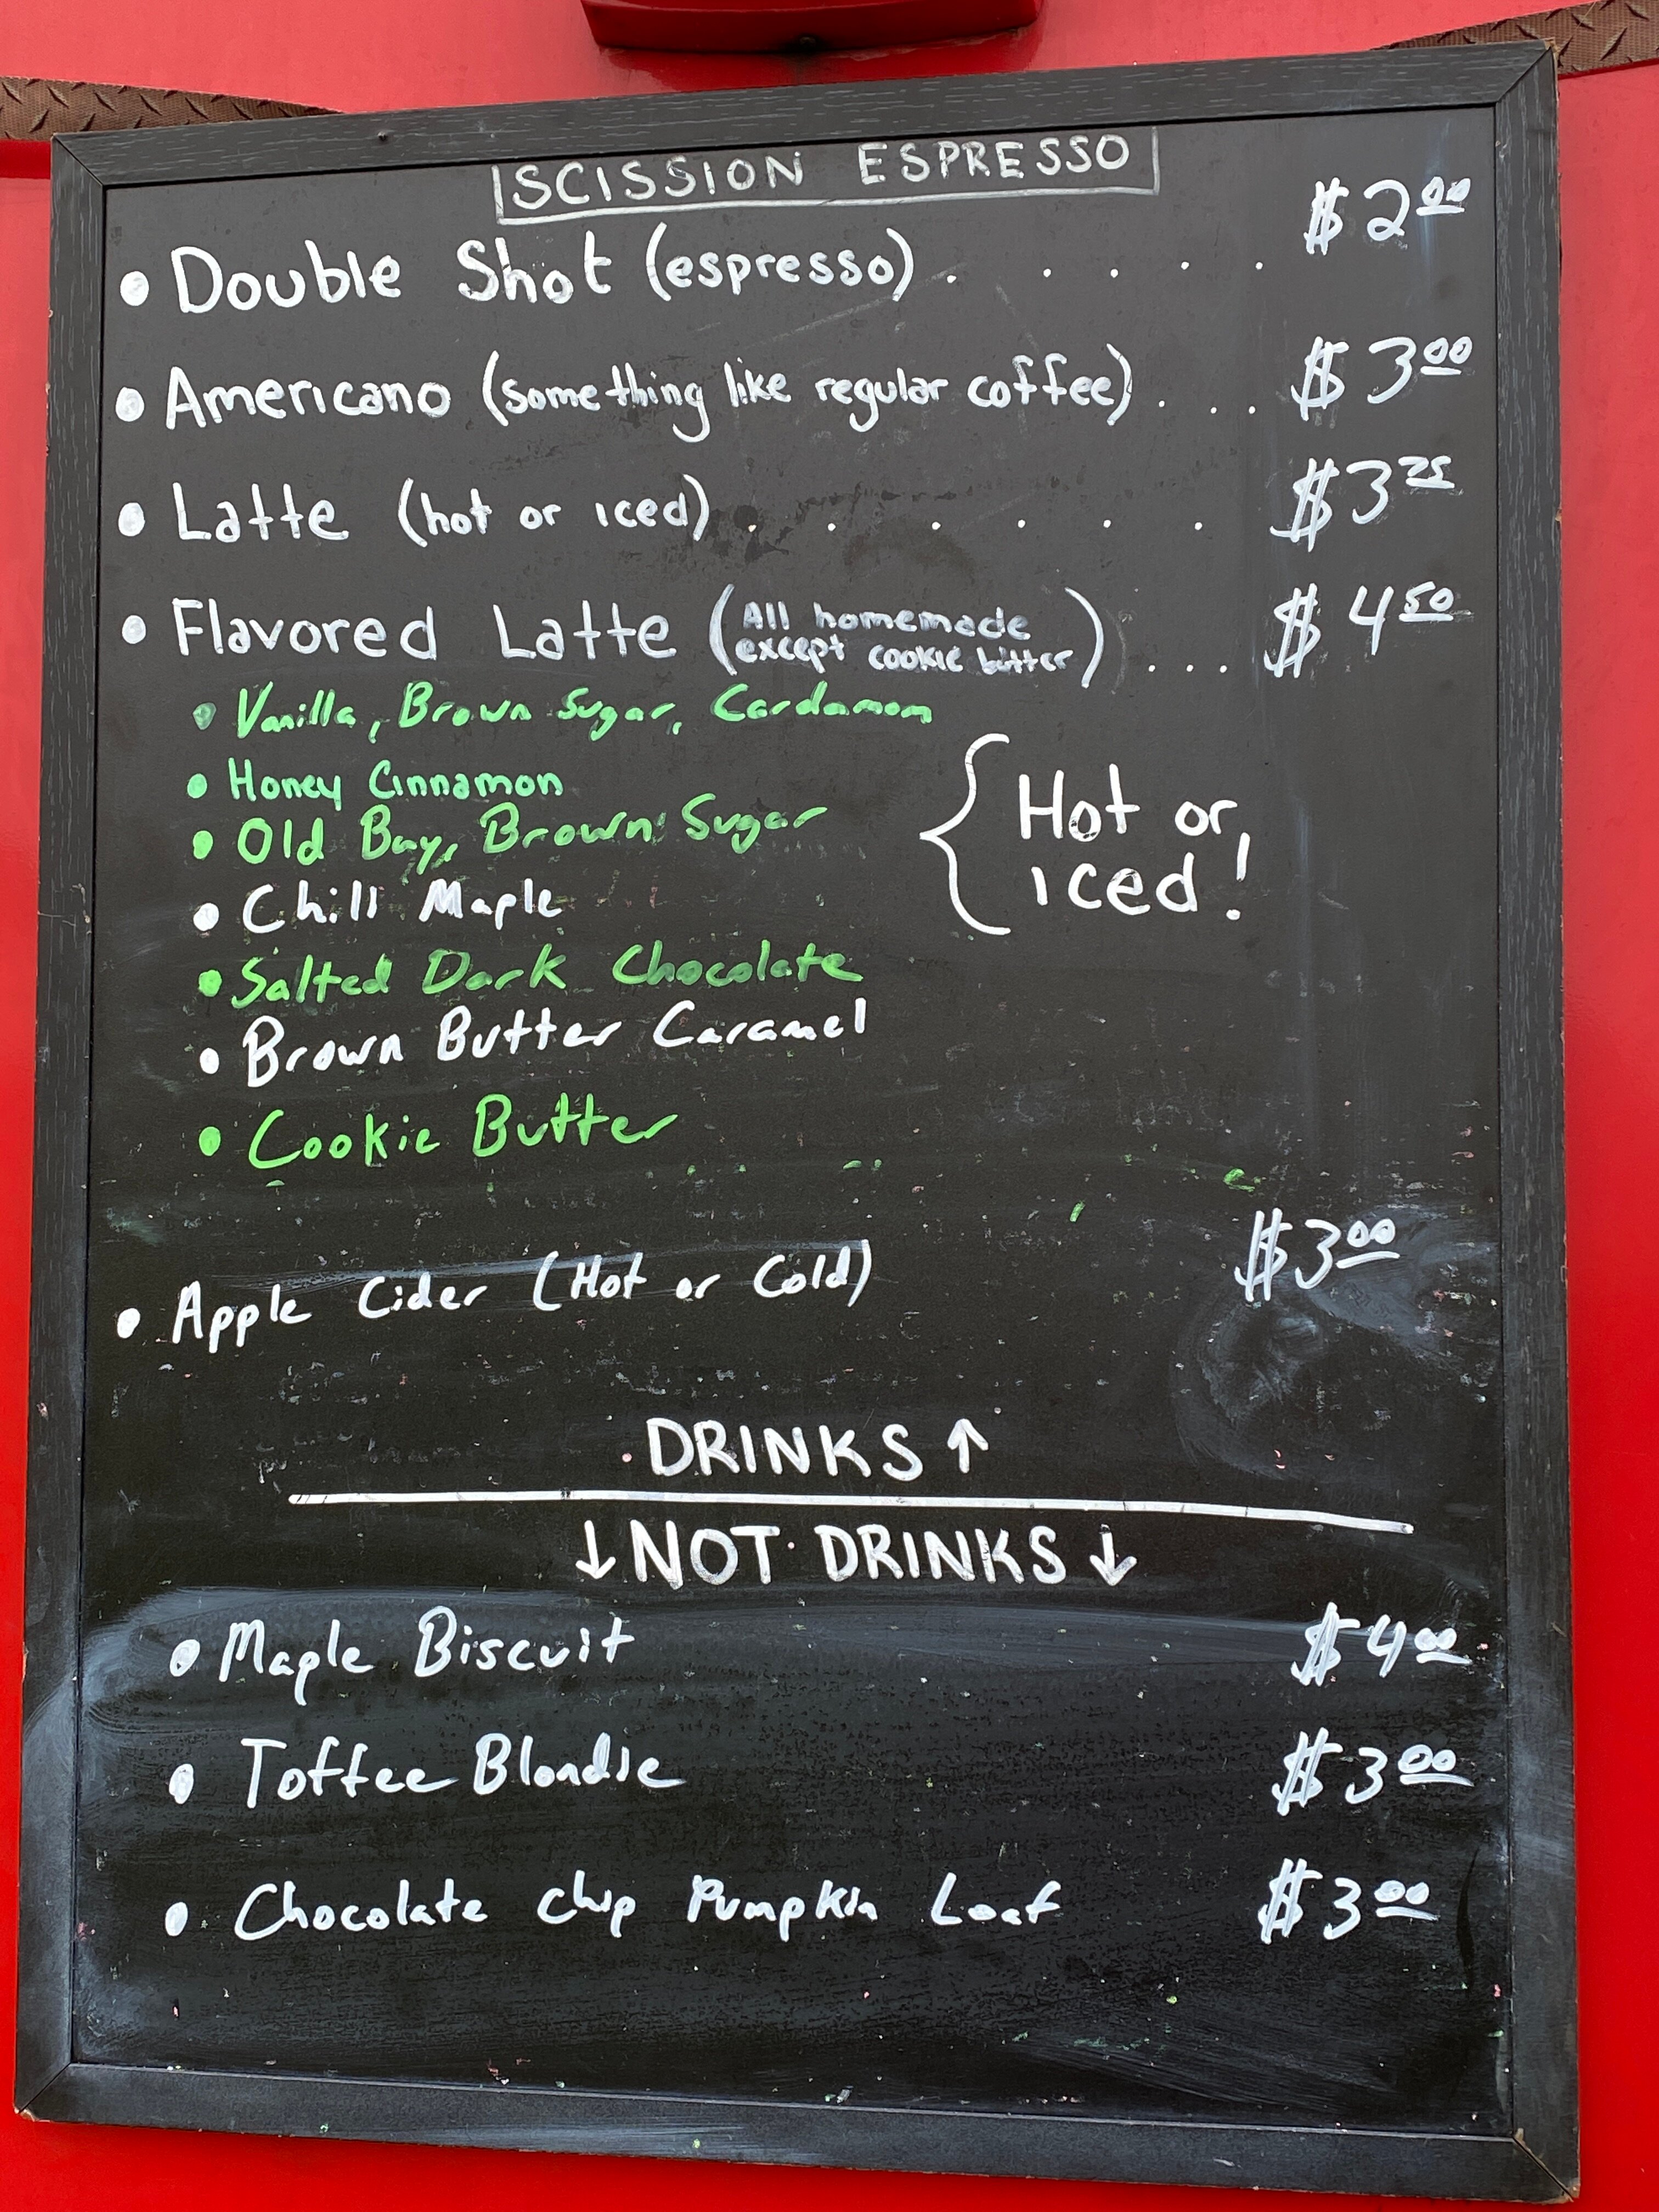 SCISSION ESPRESSO
• Double Shot (espresso) . . . . . $2.00
• Americano (something like regular coffee) . . . $3.00
• Latte (hot or iced) . . . . . . $3.75
• Flavored Latte (All homemade except cookie butter) . . . $4.50
• Vanilla, Brown Sugar, Cardamom
• Honey Cinnamon
• Old Bay, Brown Sugar
• Chill Maple
• Salted Dark Chocolate
• Brown Butter Caramel
• Cookie Butter
{ Hot or
iced!
• Apple Cider (Hot or Cold) $3.00
DRINKS ↑
↓ NOT DRINKS ↓
• Maple Biscuit $4.00
• Toffee Blondie $3.00
• Chocolate Chip Pumpkin Loaf $3.00